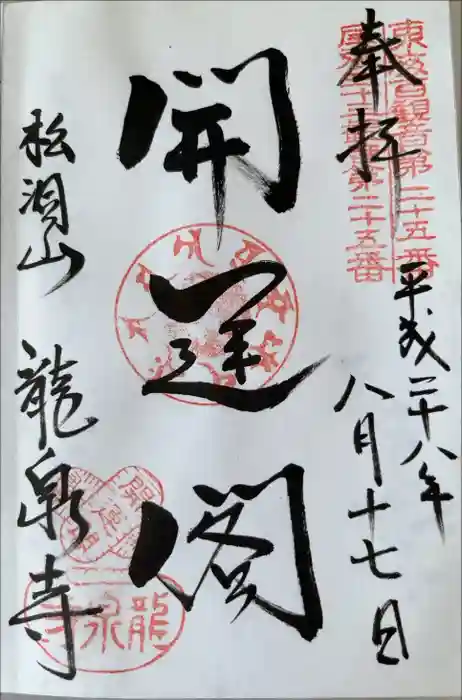 奉拝
東海百観音第二十五番
第二十五番
平成二十八年
八月十七日
開運閣
松洞山
龍泉寺
龍泉寺